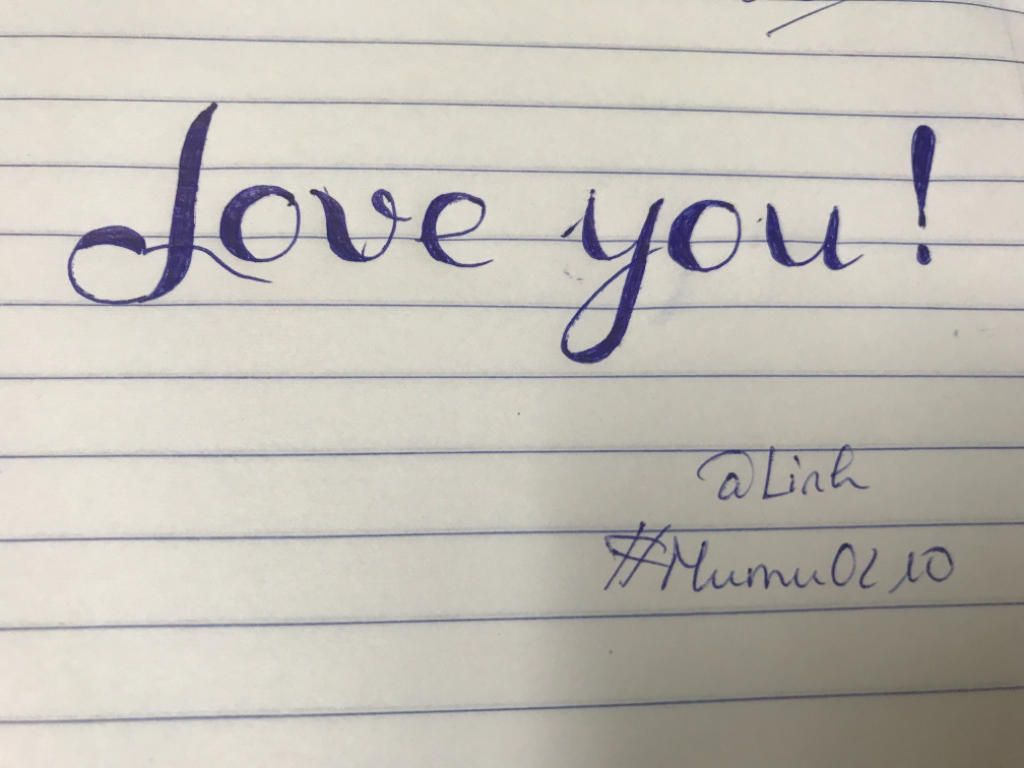 Love you!
@Linh
#Mumu0210